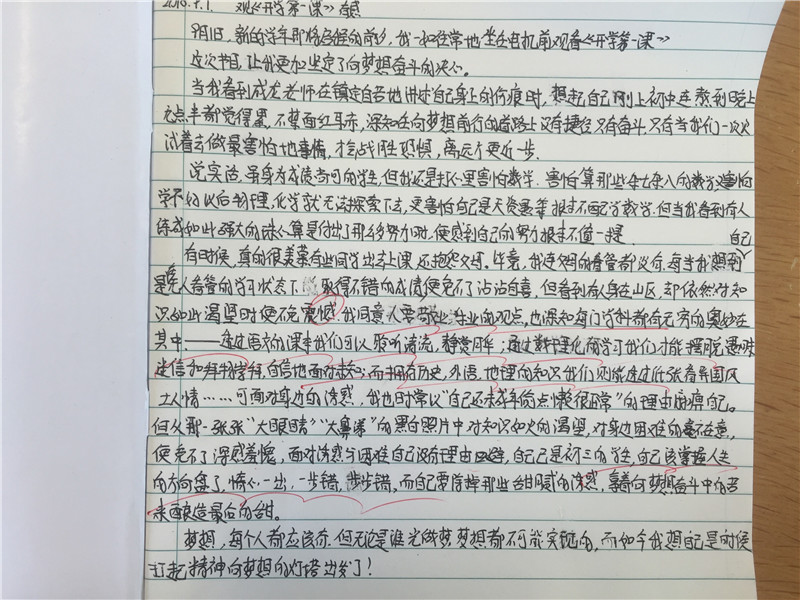 2016.9.1. 观《开学第一课》有感
9月1日,新的学年即将启程的前夕,我一如往常地坐在电视机前观看《开学第一课》
这次节目,让我更加坚定了向梦想奋斗的决心。
当我看到成龙老师在镇定自若地讲述自己身上的伤痕时,想起自己刚上初中连熬到晚上
九点半都觉得累,不禁面红耳赤,深知在向梦想前行的道路上没有捷径只有奋斗,只有当我们一次次
试着去做最害怕的事情,才会战胜恐惧,离远方更近一步。
说实话,虽身为成绩尚可的学生,但我还是打心里害怕数学,害怕算那些杂七杂八的数学,害怕
学不好以后物理,化学就无法探索下去,更害怕自己是天资愚笨根本不配学数学。但当我看到有人
练成如此强大的珠心算是付出了那么多努力时,便感到自己的努力根本不值一提。
有时候,真的很羡慕有些同学出去上课还抱怨父母。毕竟,我连父母的看管都没有,每当我想到自己
是在无人看管的学习状态下 取得不错的成绩便免不了沾沾自喜,但看到有人身在山区,却依然对知
识如此渴望时便不免震憾。我同意 的观点,也深知每门学科都有无穷的奥妙在
其中——通过语文的课本我们可以聆听清流,静赏月华;通过数学理化的学习我们才能摆脱愚昧
迷信和 ,自信地面对未知;而拥有历史,外语,地理的知识我们则能透过纸张看异国风
土人情……可面对身边的诱惑,我也时常以"自己还未成年有点懒很正常"的理由麻痹自己。
但从那一张张"大眼睛""大鼻涕"的黑白照片中对知识如火的渴望,对身边困难的毫不在意,
便免不了深感羞愧,面对诱惑与困难自己没有理由 ,自己已是初三的学生,自己该掌握人生
的大向盘了,惰心一出,一步错,步步错,而自己要 掉那些甜腻的诱惑,拿着向梦想奋斗中的苦
来酿造最后的甜。
梦想,每个人都应该有。但无论是谁光做梦,梦想都不可能实现的,而如今我想自己是时候
打起精神向梦想的灯塔出发了!